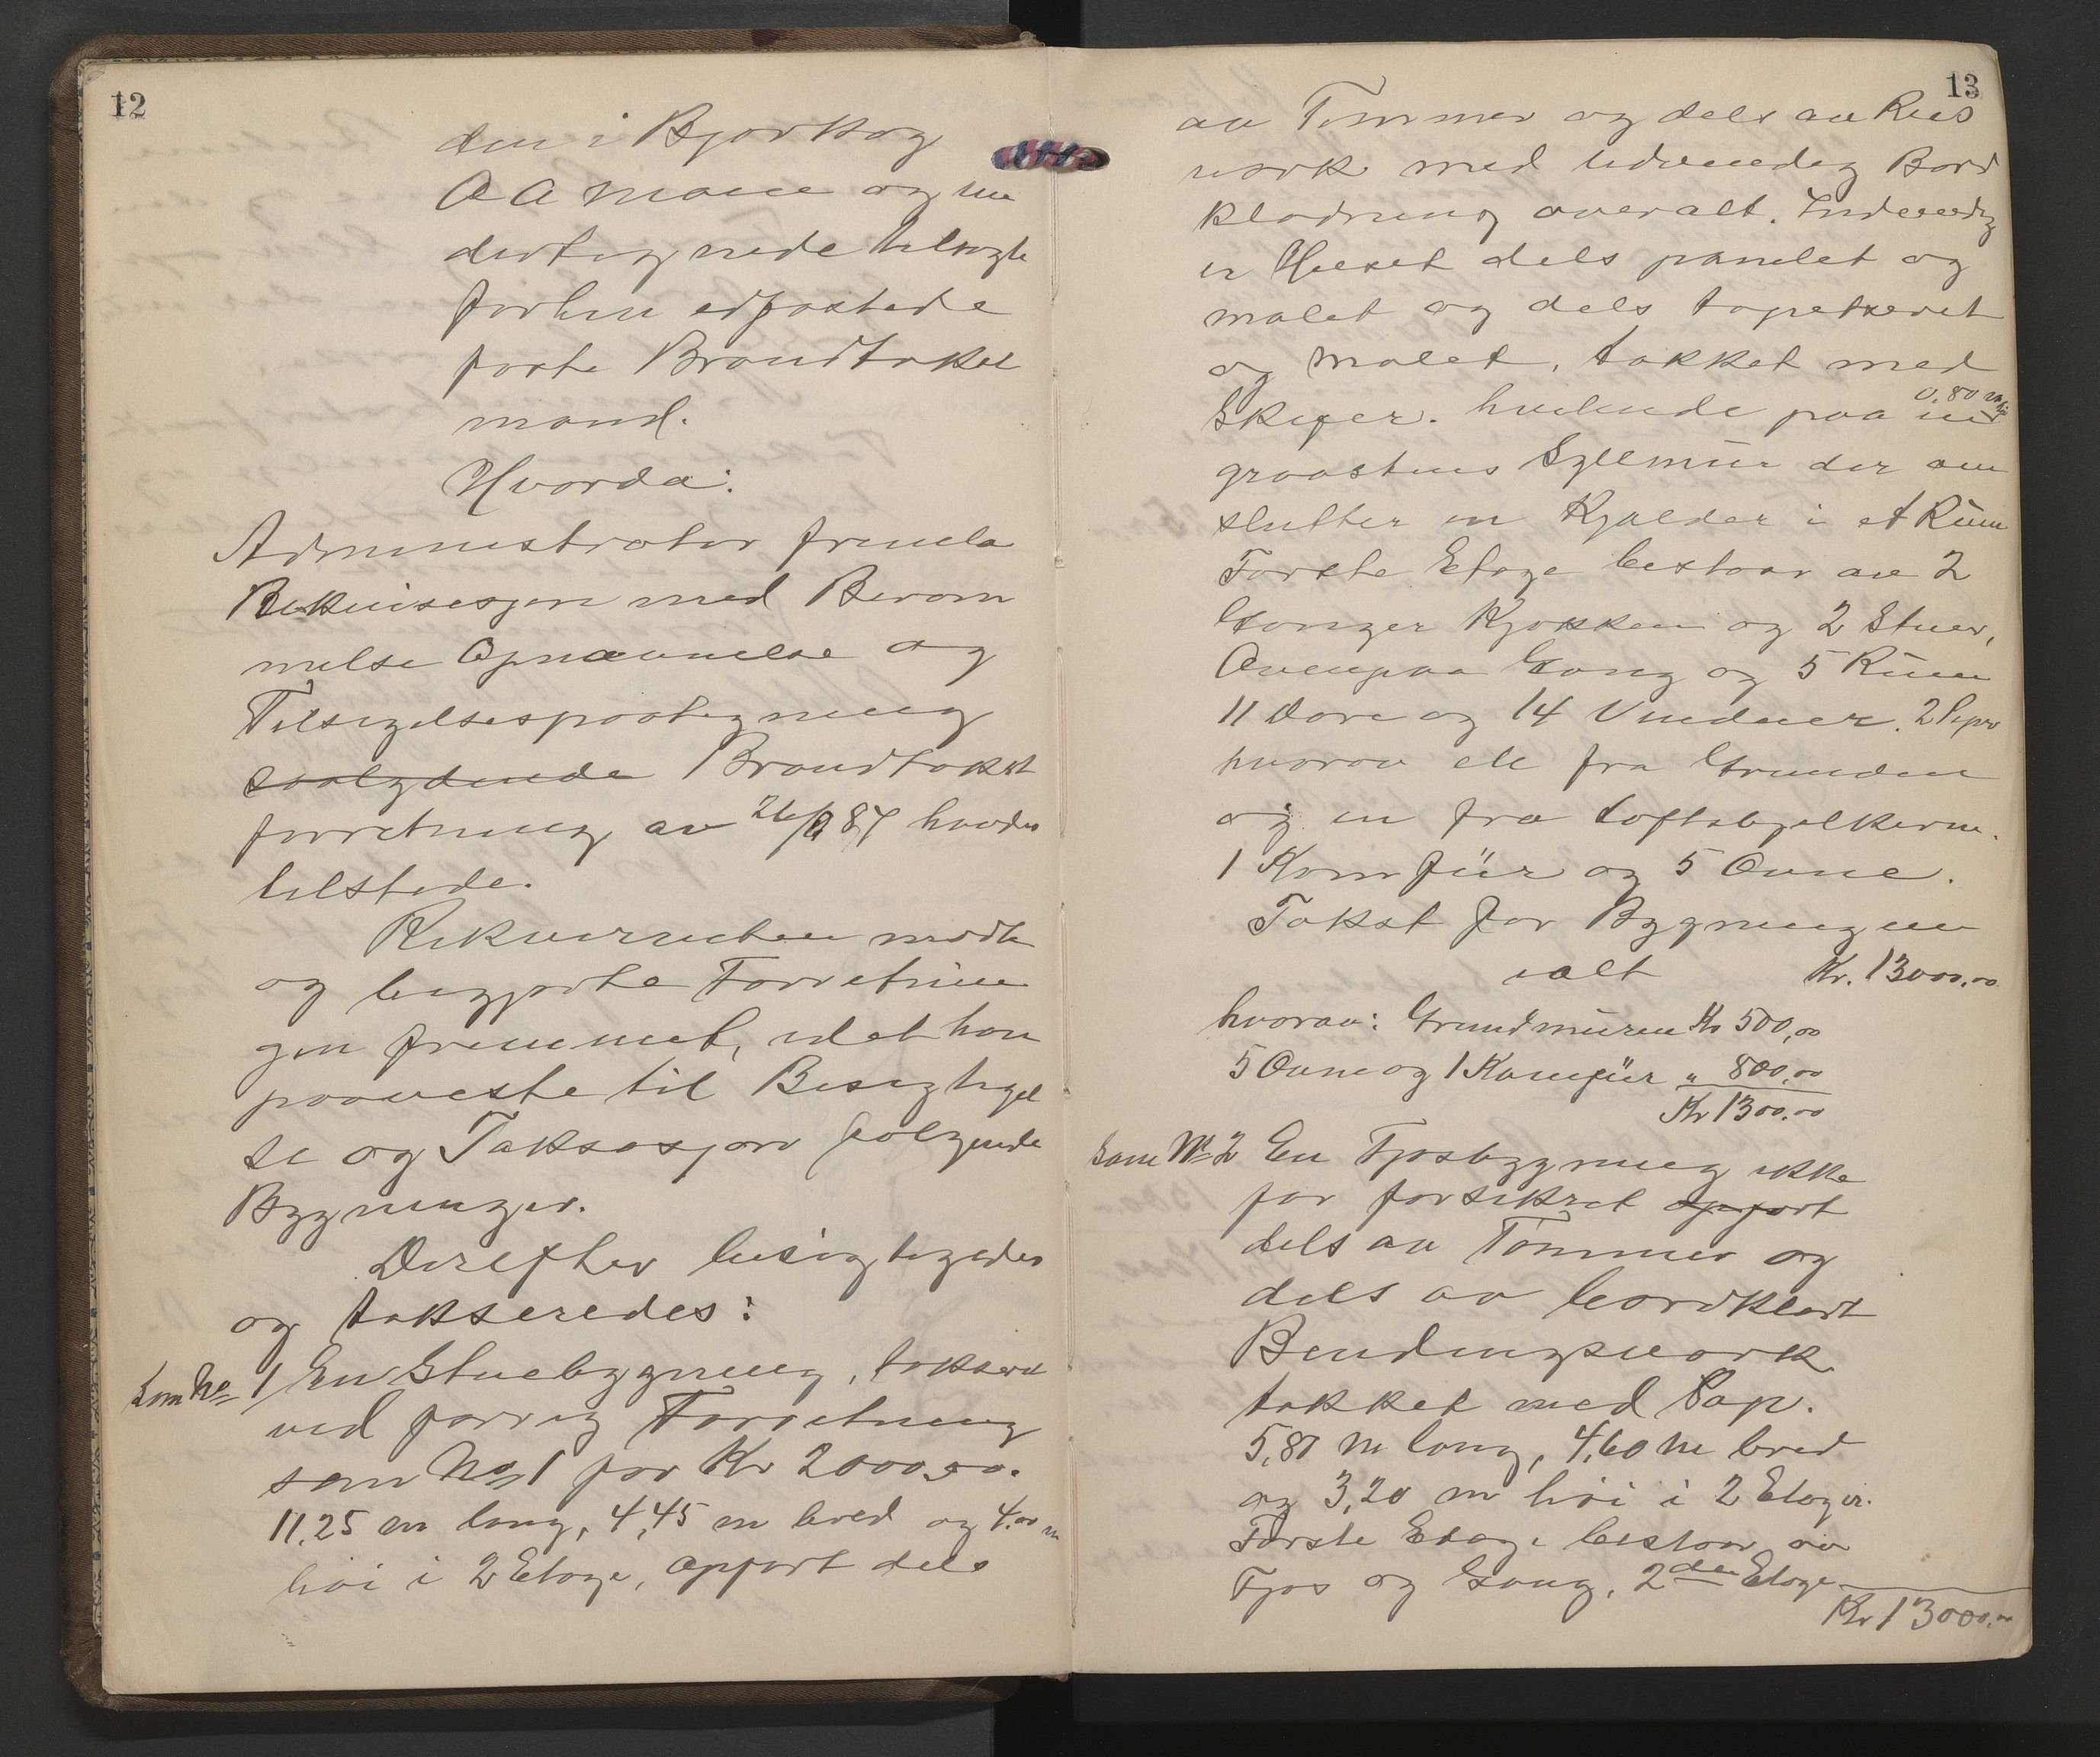 12
den i Bjørkog
A A Moene og un
dertegnede tilsagte
forhen edfæstede
faste Brandtakst
mand.
Hvorda:
Administrator fremla
Rekvisisjon med Beram
melse Opnævnelse og
Tilsigelsespaategning
saalydende Brandtakst
forretning av 26/9 87 havdes
tilstede.
Rekvirenten mødte
og begjærte Forretnin
gen fremmet, idet han
paaviste til Besigtigel
se og Taksasjon følgende
Bygninger.
Derefter besigtigedes
og takseredes:
Som No 1 En Stuebygning, taksert
ved forrig Forretning
som No 1 for Kr 2000,00.
11,25 m lang, 4,45 m bred og 4,00 m
høi i 2 Etage, opført dels
13
av Tømmer og dels av Reis
værk med udvendig Bord
klædning overalt. Indvendig
er Huset dels panelet og
malet og dels tapetseret
og malet, tækket med
Skifer. hvilende paa en 0,80 m høi
graastens Syllmur der om
slutter en Kjælder i et Rum
Første Etage bestaar av 2
Ganger Kjøkken og 2 Stuer,
Ovenpaa Gang og 5 Rum
11 Døre og 14 Vinduer. 2 Piper
hvorav en fra Grunden
og en fra Loftsbjelkerne.
1 Komfür og 5 Ovne.
Takst for Bygningen
ialt Kr. 13000,00
hvorav: Grundmuren Kr 500,00
5 Ovne og 1 Komfür " 800,00
Kr 1300,00
Som No 2 En Fjøsbygning ikke
før forsikret opført
dels av Tømmer og
dels av bordklædt
Bindingsværk
tækket med Pap.
5,80 m lang, 4,60 m bred
og 3,20 m høi i 2 Etager.
Første Etage bestaar av
Fjøs og Gang, 2den Etage
Kr 13000,00